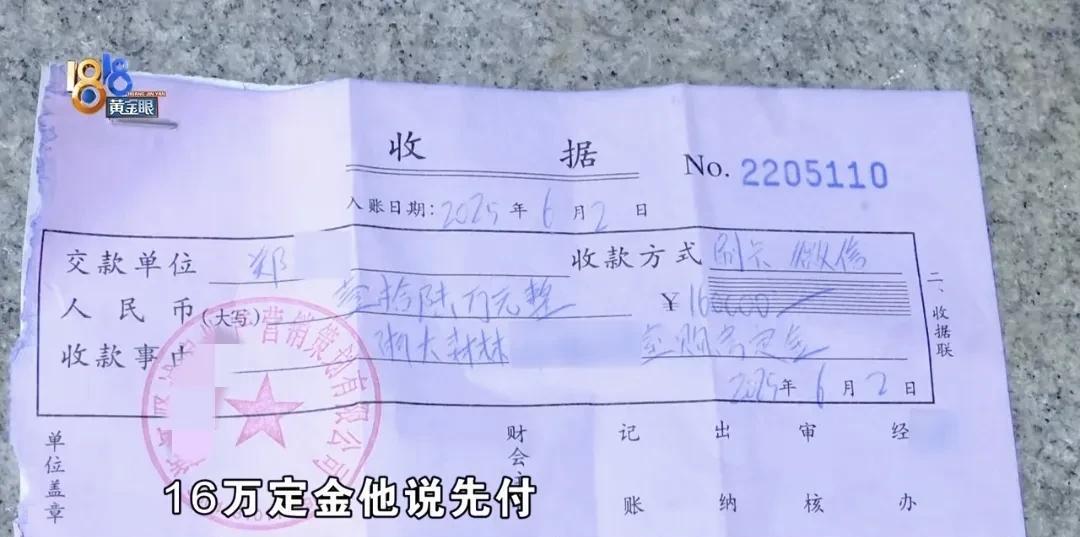 1818
黄金眼
收 据
No. 2205110
入账日期:2025年6月2日
交款单位 郑 收款方式 刷卡 微信
人民币(大写) 壹拾陆万元整 ¥160000
收款事由 浙大森林 室购房定金
2025年6月2日
二、收据联
营销策划有限公司
单位盖章 财会 记账 出纳 审核 经办
16万定金他说先付